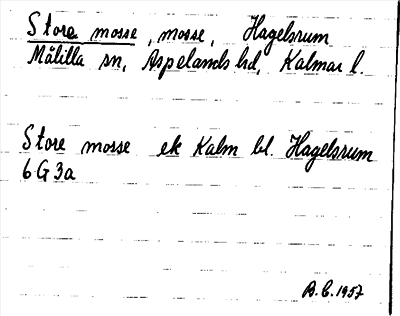 Store mosse, mosse, Hagelsrum
Målilla sn, Aspelands hd, Kalmar l.
Store mosse ek Kalm bl. Hagelsrum
6G3a
B.E.1957